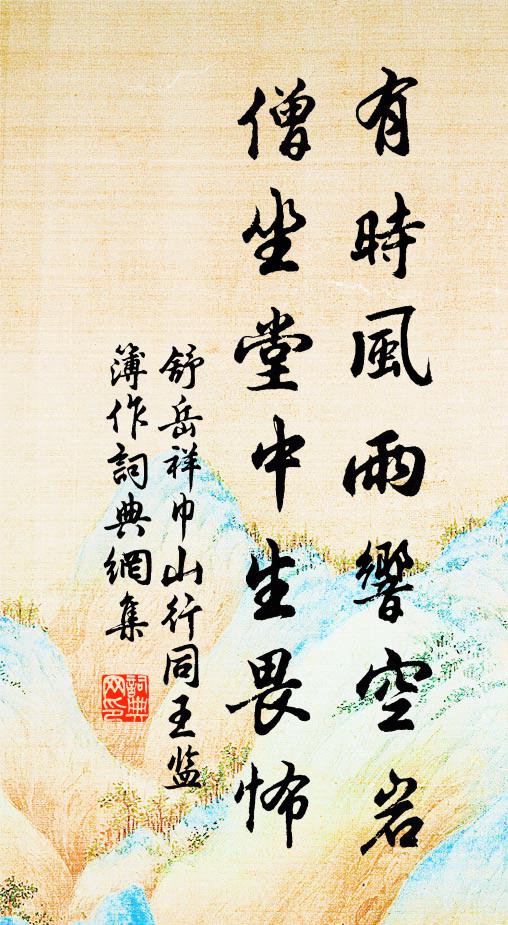 有時風雨響空岩
僧坐堂中生畏怖
舒岳祥巾山行同王监
簿作詞典網集
詞典網印